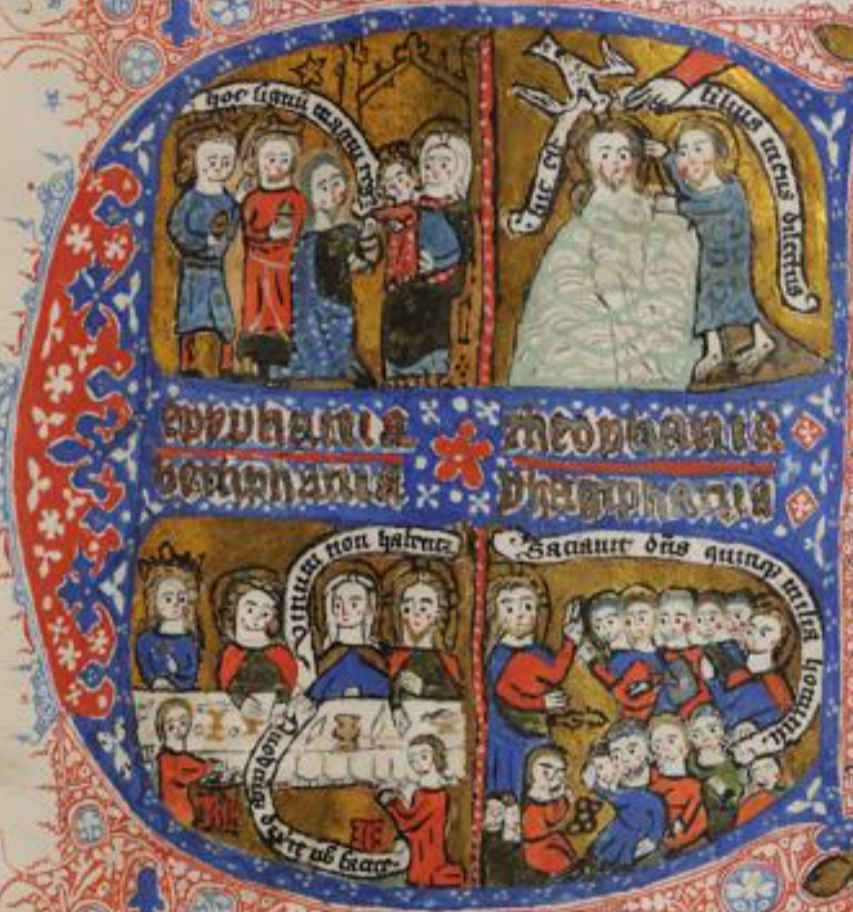 hoc signū magni regis
hic est
filius meus dilectus
epyphania
theophania
bethphania
phagiphania
vinum non habent
Saciauit dn̄s quinq milia hominū